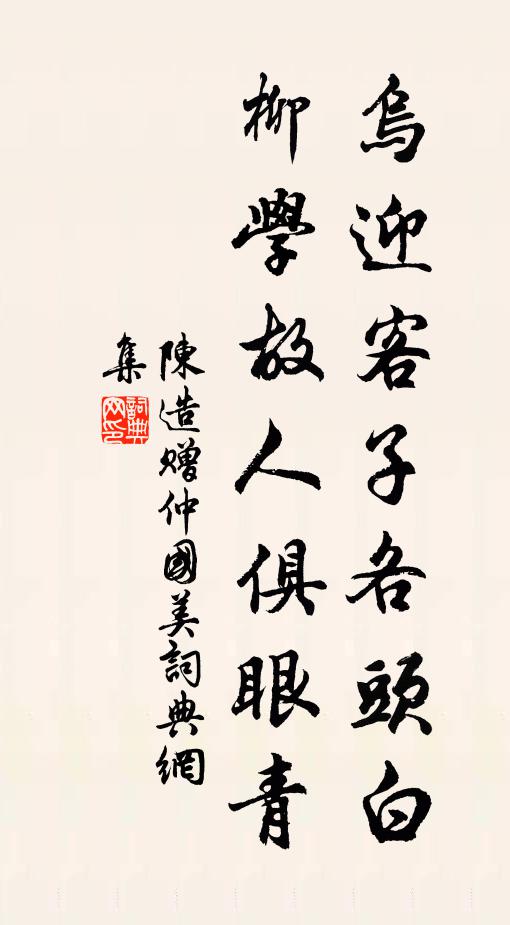 烏迎客子各頭白
柳學故人俱眼青
陳造贈仲國美詞典網
集
詞典
网印